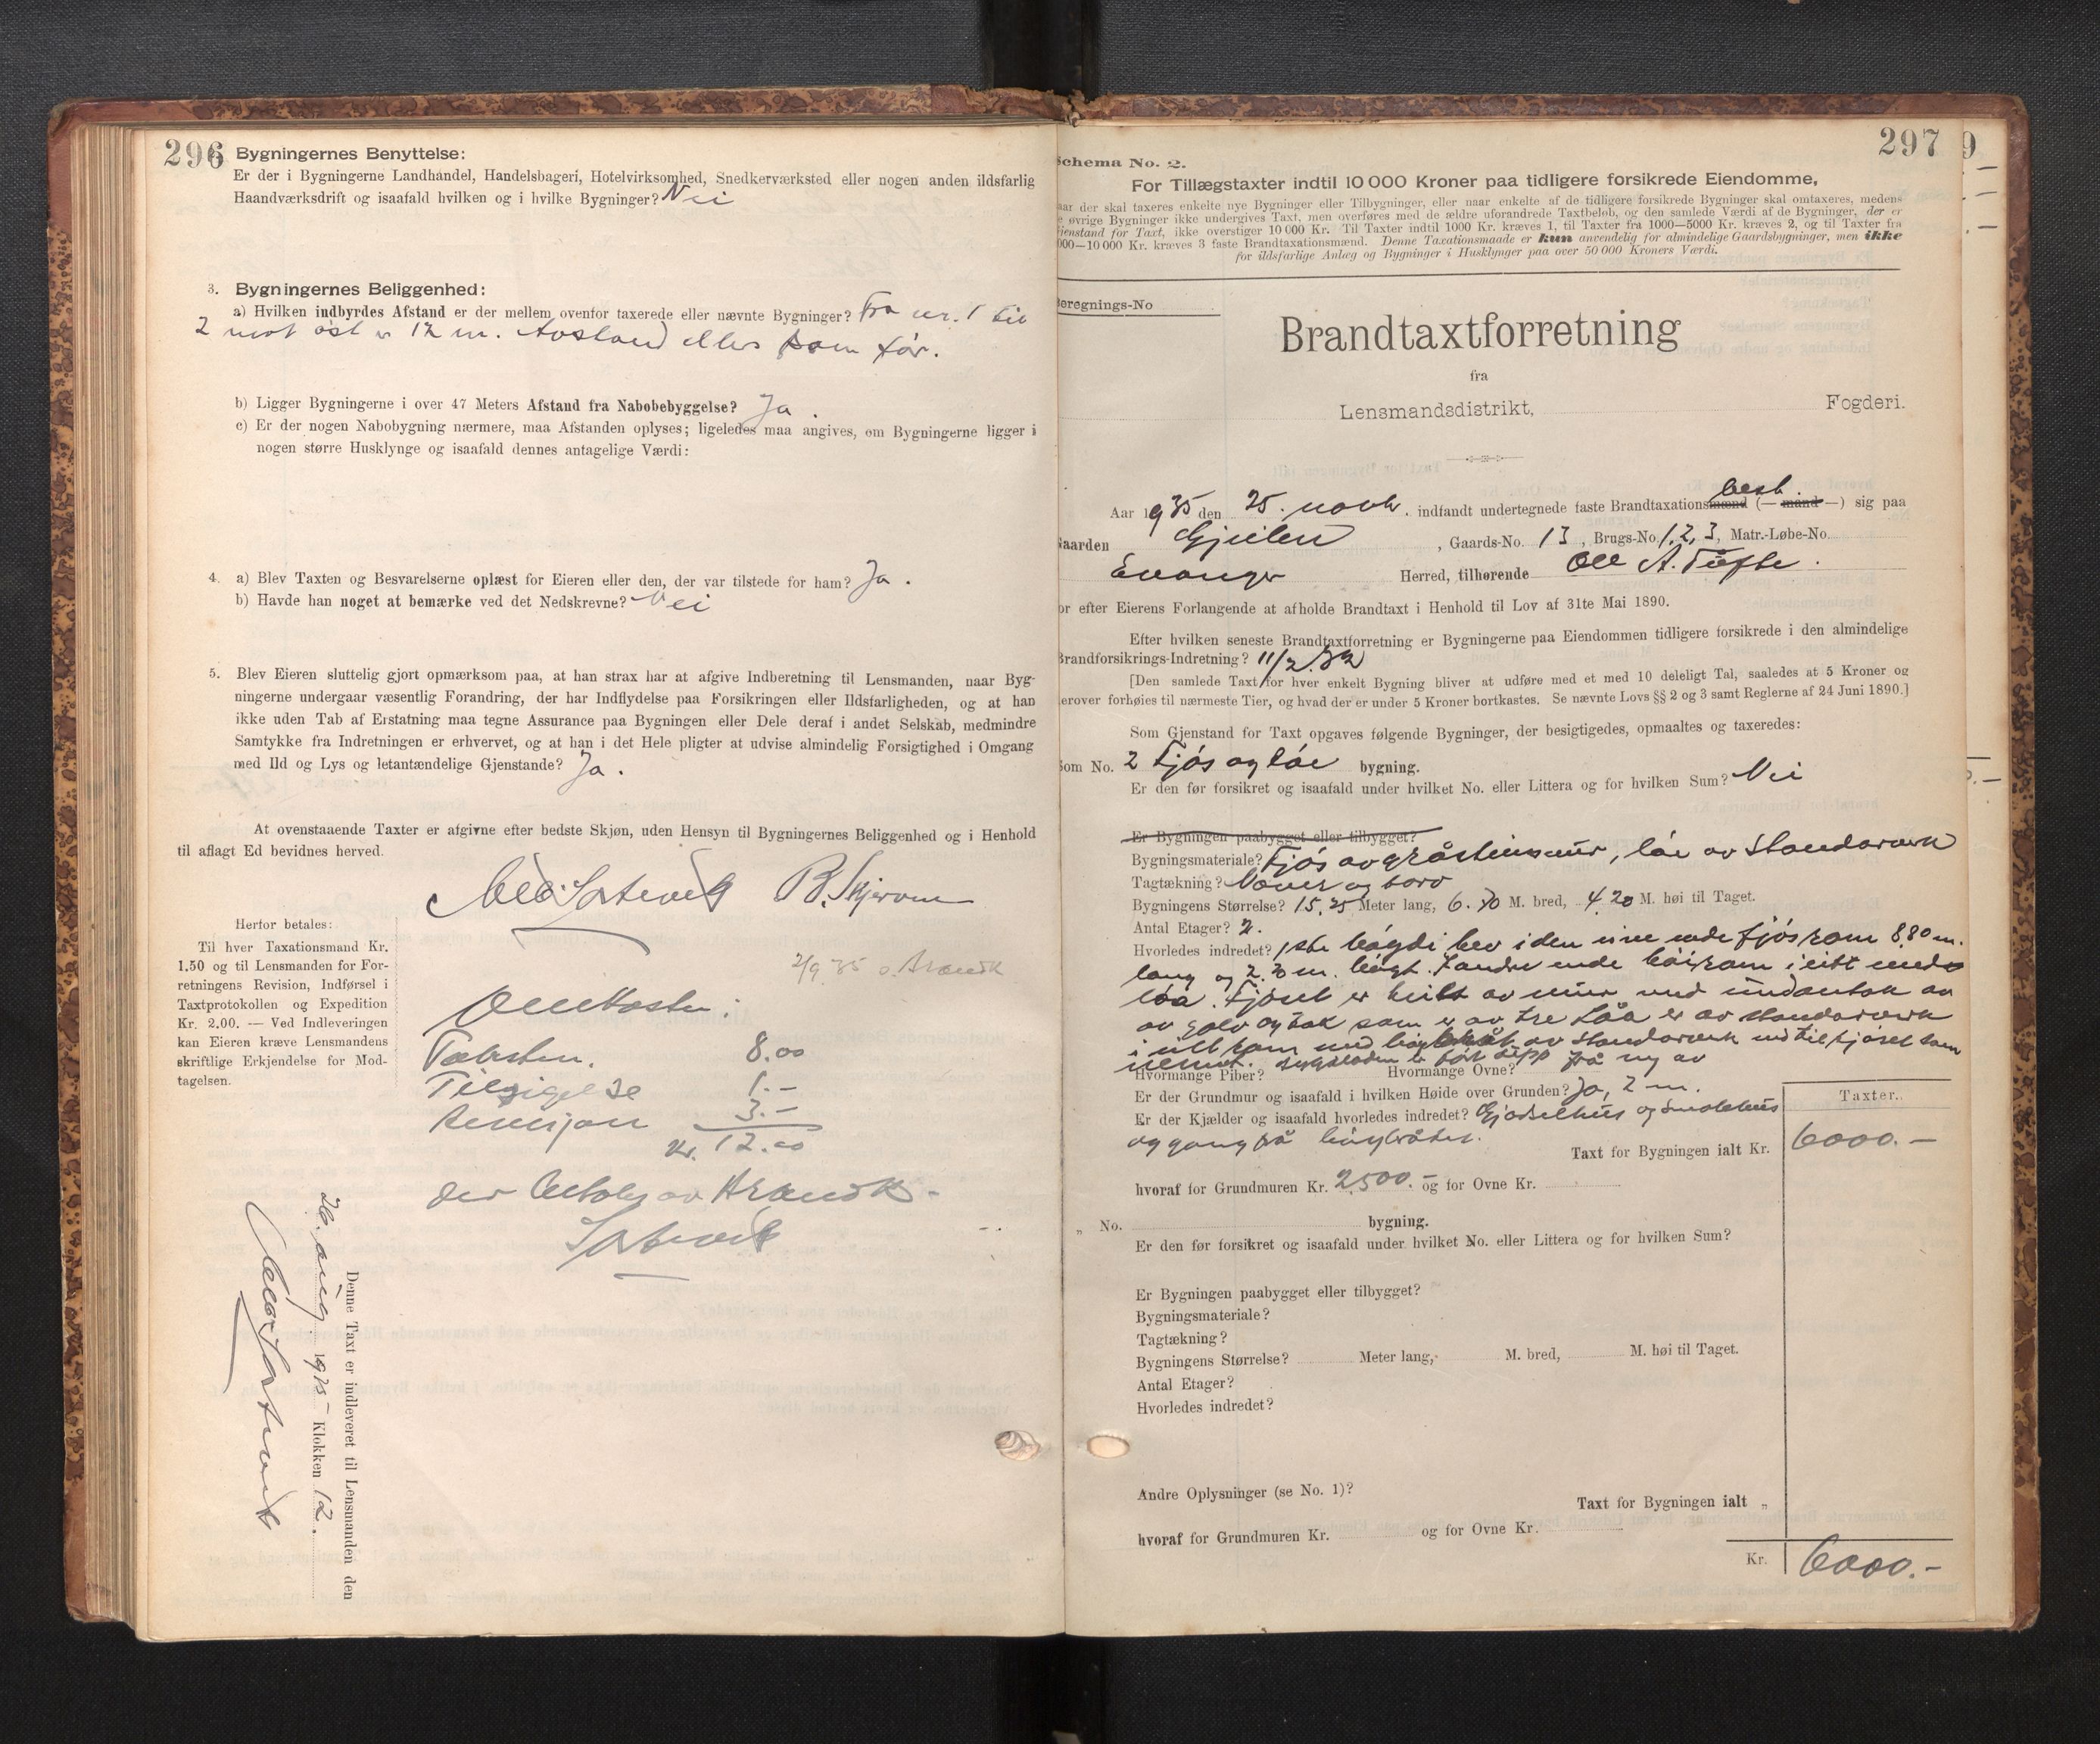 296
Bygningernes Benyttelse:
Er der i Bygningerne Landhandel, Handelsbageri, Hotelvirksomhed, Snedkerværksted eller nogen anden ildsfarlig
Haandværksdrift og isaafald hvilken og i hvilke Bygninger? Nei
3. Bygningernes Beliggenhed:
a) Hvilken indbyrdes Afstand er der mellem ovenfor taxerede eller nævnte Bygninger? Fra nr. 1 til
2 mot øst er 12 m. Avstand ellers som før.
b) Ligger Bygningerne i over 47 Meters Afstand fra Nabobebyggelse? Ja.
c) Er der nogen Nabobygning nærmere, maa Afstanden oplyses; ligeledes maa angives, om Bygningerne ligger i
nogen større Husklynge og isaafald dennes antagelige Værdi:
4. a) Blev Taxten og Besvarelserne oplæst for Eieren eller den, der var tilstede for ham? Ja.
b) Havde han noget at bemærke ved det Nedskrevne? Nei
5. Blev Eieren sluttelig gjort opmærksom paa, at han strax har at afgive Indberetning til Lensmanden, naar Byg-
ningerne undergaar væsentlig Forandring, der har Indflydelse paa Forsikringen eller Ildsfarligheden, og at han
ikke uden Tab af Erstatning maa tegne Assurance paa Bygningen eller Dele deraf i andet Selskab, medmindre
Samtykke fra Indretningen er erhvervet, og at han i det Hele pligter at udvise almindelig Forsigtighed i Omgang
med Ild og Lys og letantændelige Gjenstande? Ja.
At ovenstaaende Taxter er afgivne efter bedste Skjøn, uden Hensyn til Bygningernes Beliggenhed og i Henhold
til aflagt Ed bevidnes herved.
B. Skjerven
Herfor betales:
Til hver Taxationsmand Kr.
1.50 og til Lensmanden for For-
retningens Revision, Indførsel i
Taxtprotokollen og Expedition
Kr. 2.00. — Ved Indleveringen
kan Eieren kræve Lensmandens
skriftlige Erkjendelse for Mod-
tagelsen.
2/9 35
Omkostn:
Takstn. 8.00
Tilsigelse 1.-
Revisjon 3.-
Kr. 12.00
Denne Taxt er indleveret til Lensmanden den
26. aug. 1935 Klokken 12.
297
Schema No. 2.
For Tillægstaxter indtil 10 000 Kroner paa tidligere forsikrede Eiendomme,
aar der skal taxeres enkelte nye Bygninger eller Tilbygninger, eller naar enkelte af de tidligere forsikrede Bygninger skal omtaxeres, medens
e øvrige Bygninger ikke undergives Taxt, men overføres med de ældre uforandrede Taxtbeløb, og den samlede Værdi af de Bygninger, der er
jenstand for Taxt, ikke overstiger 10 000 Kr. Til Taxter indtil 1000 Kr. kræves 1, til Taxter fra 1000—5000 Kr. kræves 2, og til Taxter fra
000—10 000 Kr. kræves 3 faste Brandtaxationsmænd. Denne Taxationsmaade er kun anvendelig for almindelige Gaardsbygninger, men ikke
for ildsfarlige Anlæg og Bygninger i Husklynger paa over 50 000 Kroners Værdi.
Beregnings-No
Brandtaxtforretning
fra
Lensmandsdistrikt, Fogderi.
Aar 1935 den 25. novbr. indfandt undertegnede faste Brandtaxationsmænd (— mand —) sig paa
Gaarden Gjeilen, Gaards-No. 13, Brugs-No. 1, 2, 3, Matr.-Løbe-No.
Evanger Herred, tilhørende Ole A. Tufte.
or efter Eierens Forlangende at afholde Brandtaxt i Henhold til Lov af 31te Mai 1890.
Efter hvilken seneste Brandtaxtforretning er Bygningerne paa Eiendommen tidligere forsikrede i den almindelige
Brandforsikrings-Indretning? 11/2.32
[Den samlede Taxt for hver enkelt Bygning bliver at udføre med et med 10 deleligt Tal, saaledes at 5 Kroner og
erover forhøies til nærmeste Tier, og hvad der er under 5 Kroner bortkastes. Se nævnte Lovs §§ 2 og 3 samt Reglerne af 24 Juni 1890.]
Som Gjenstand for Taxt opgaves følgende Bygninger, der besigtigedes, opmaaltes og taxeredes:
Som No. 2 Fjøs og løe bygning.
Er den før forsikret og isaafald under hvilket No. eller Littera og for hvilken Sum? Nei
Er Bygningen paabygget eller tilbygget?
Bygningsmateriale? Fjøs av gråsteinsmur, løe av standarverk
Tagtækning? Never og torv
Bygningens Størrelse? 15,25 Meter lang, 6.70 M. bred, 4.20 M. høi til Taget.
Antal Etager? 2.
Hvorledes indredet? 1ste høgdi her i den eine ende fjøsrom 8,80 m.
lang og 2.30 m. høgt. I andre ende høirom i eitt med
løa. Fjøset er heilt av mur med undantak av
av golv og tak som er av tre Løa er av standarverk
i eitt rom med av standarverk
nemnt. er ført upp frå ny av
Hvormange Piber? Hvormange Ovne?
Er der Grundmur og isaafald i hvilken Høide over Grunden? Ja, 2 m.
Er der Kjælder og isaafald hvorledes indredet? Gjødselhus og
og gang på
Taxter.
Taxt for Bygningen ialt Kr. 6000.—
hvoraf for Grundmuren Kr. 2500.- og for Ovne Kr.
„ No. bygning.
Er den før forsikret og isaafald under hvilket No. eller Littera og for hvilken Sum?
Er Bygningen paabygget eller tilbygget?
Bygningsmateriale?
Tagtækning?
Bygningens Størrelse? Meter lang, M. bred, M. høi til Taget.
Antal Etager?
Hvorledes indredet?
Andre Oplysninger (se No. 1)?
Taxt for Bygningen ialt „
hvoraf for Grundmuren Kr. og for Ovne Kr.
Kr. 6000.-